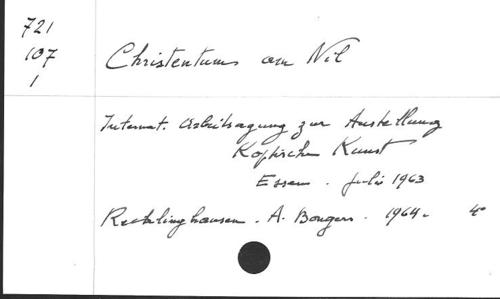 721
107
1
Christentums am Nil
Internat. Arbeitsagung zur Austellung
Koptische Kunst
Essen. Juli 1963
Recklinghausen. A. Bongers. 1964. 4°